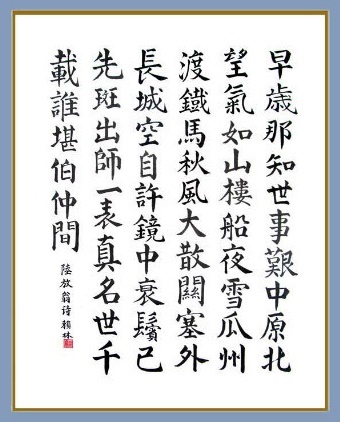 早歳那知世事艱中原北
望氣如山樓船夜雪瓜州
渡鐵馬秋風大散關塞外
長城空自許鏡中衰鬢已
先斑出師一表真名世千
載誰堪伯仲間
陸放翁诗